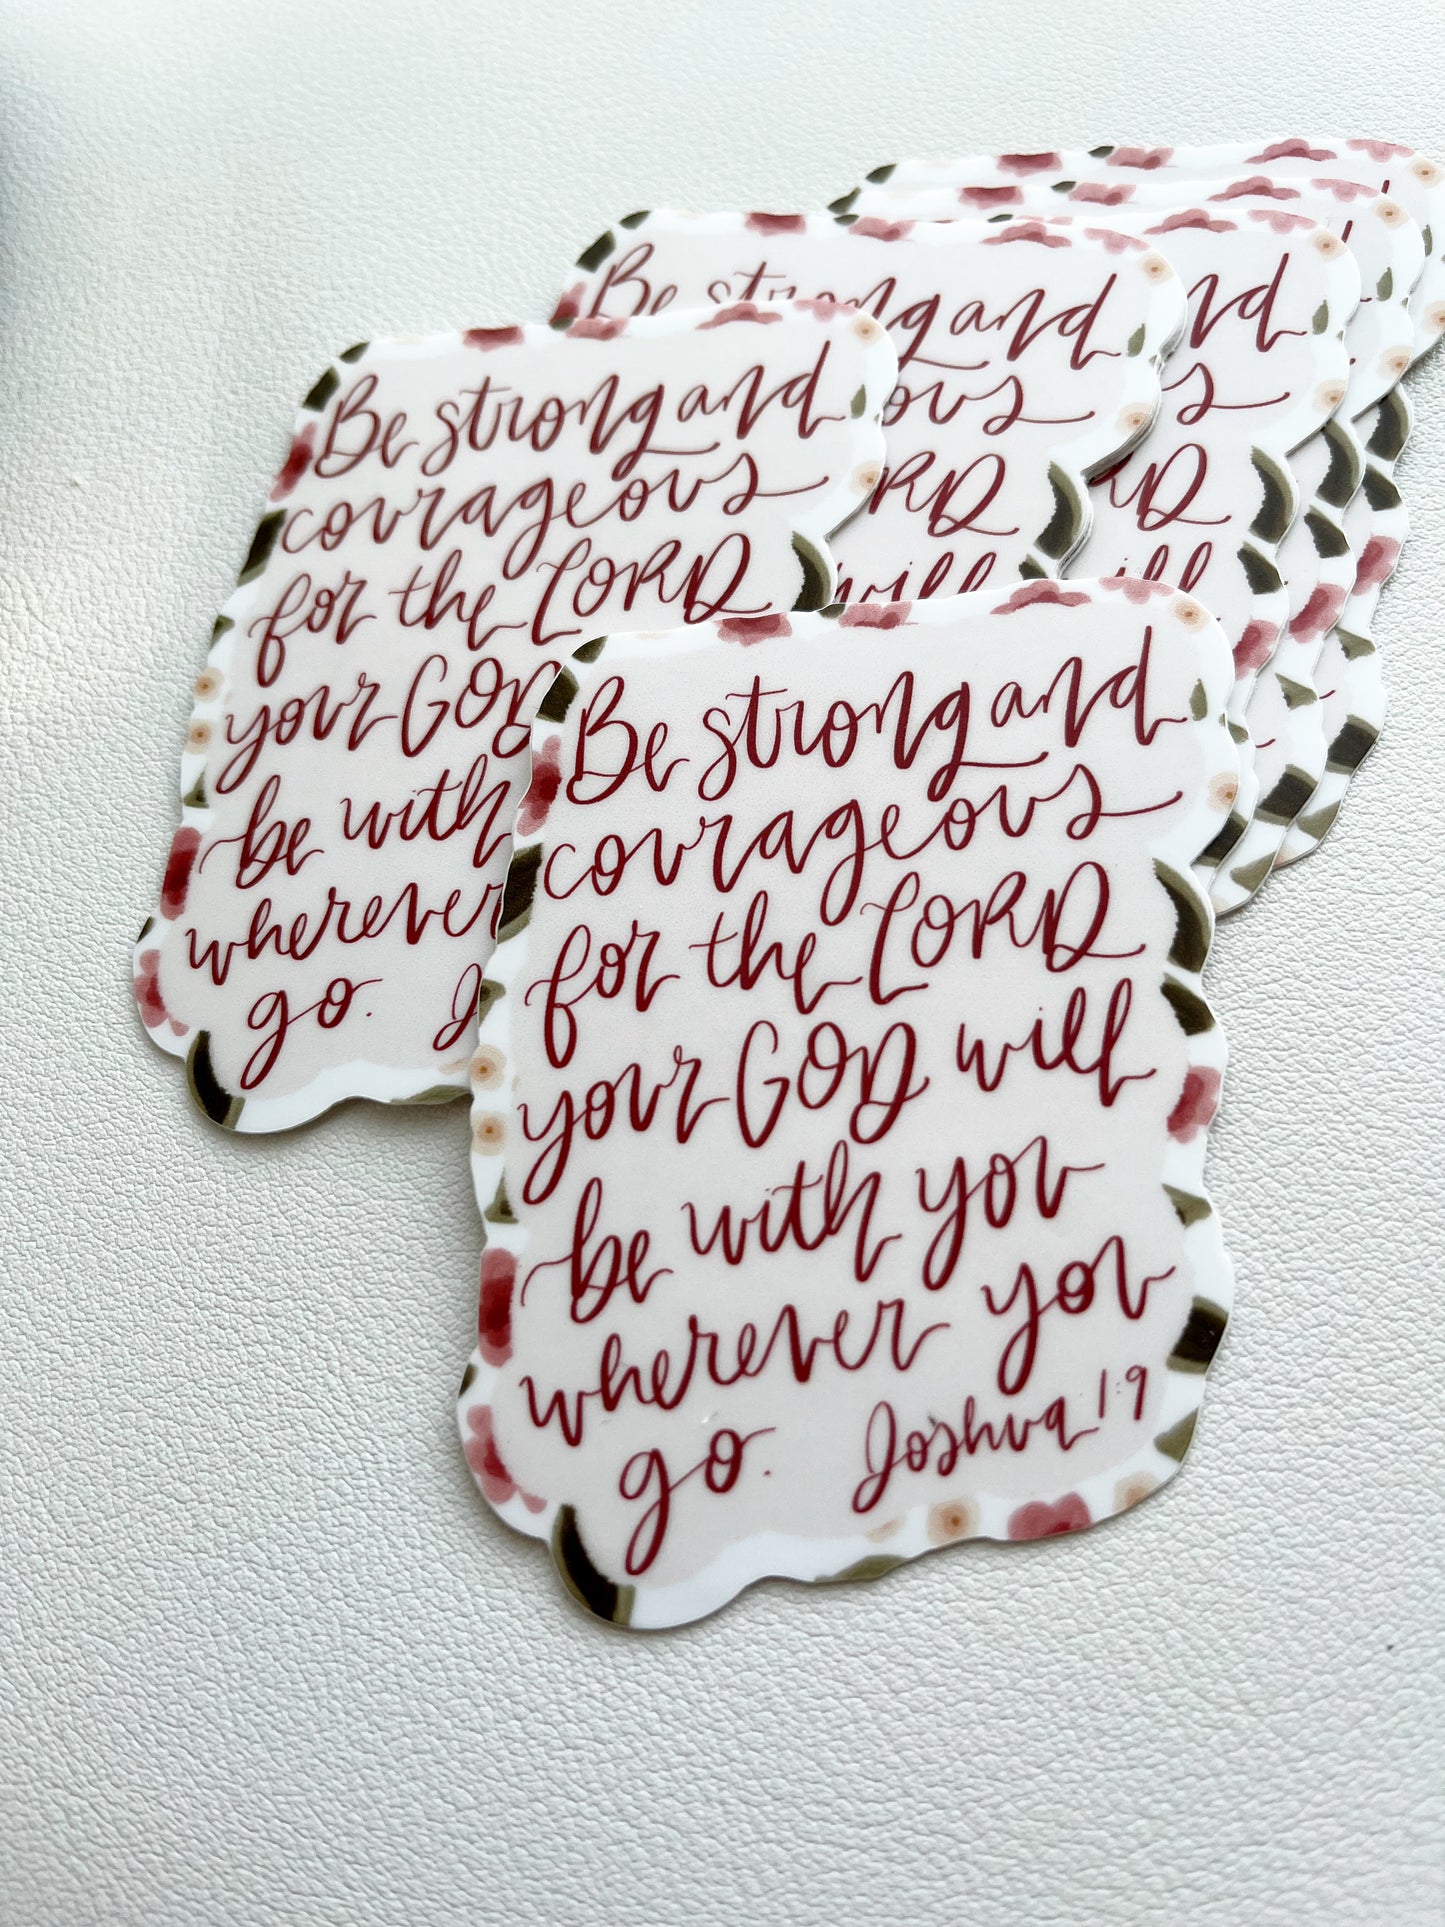 Be strong and
courageous
for the LORD
your GOD will
be with you
wherever you
go. Joshua 1:9
Be strong and
courageous
for the LORD
your GOD
be with
wherever
go.
Be strong and
will